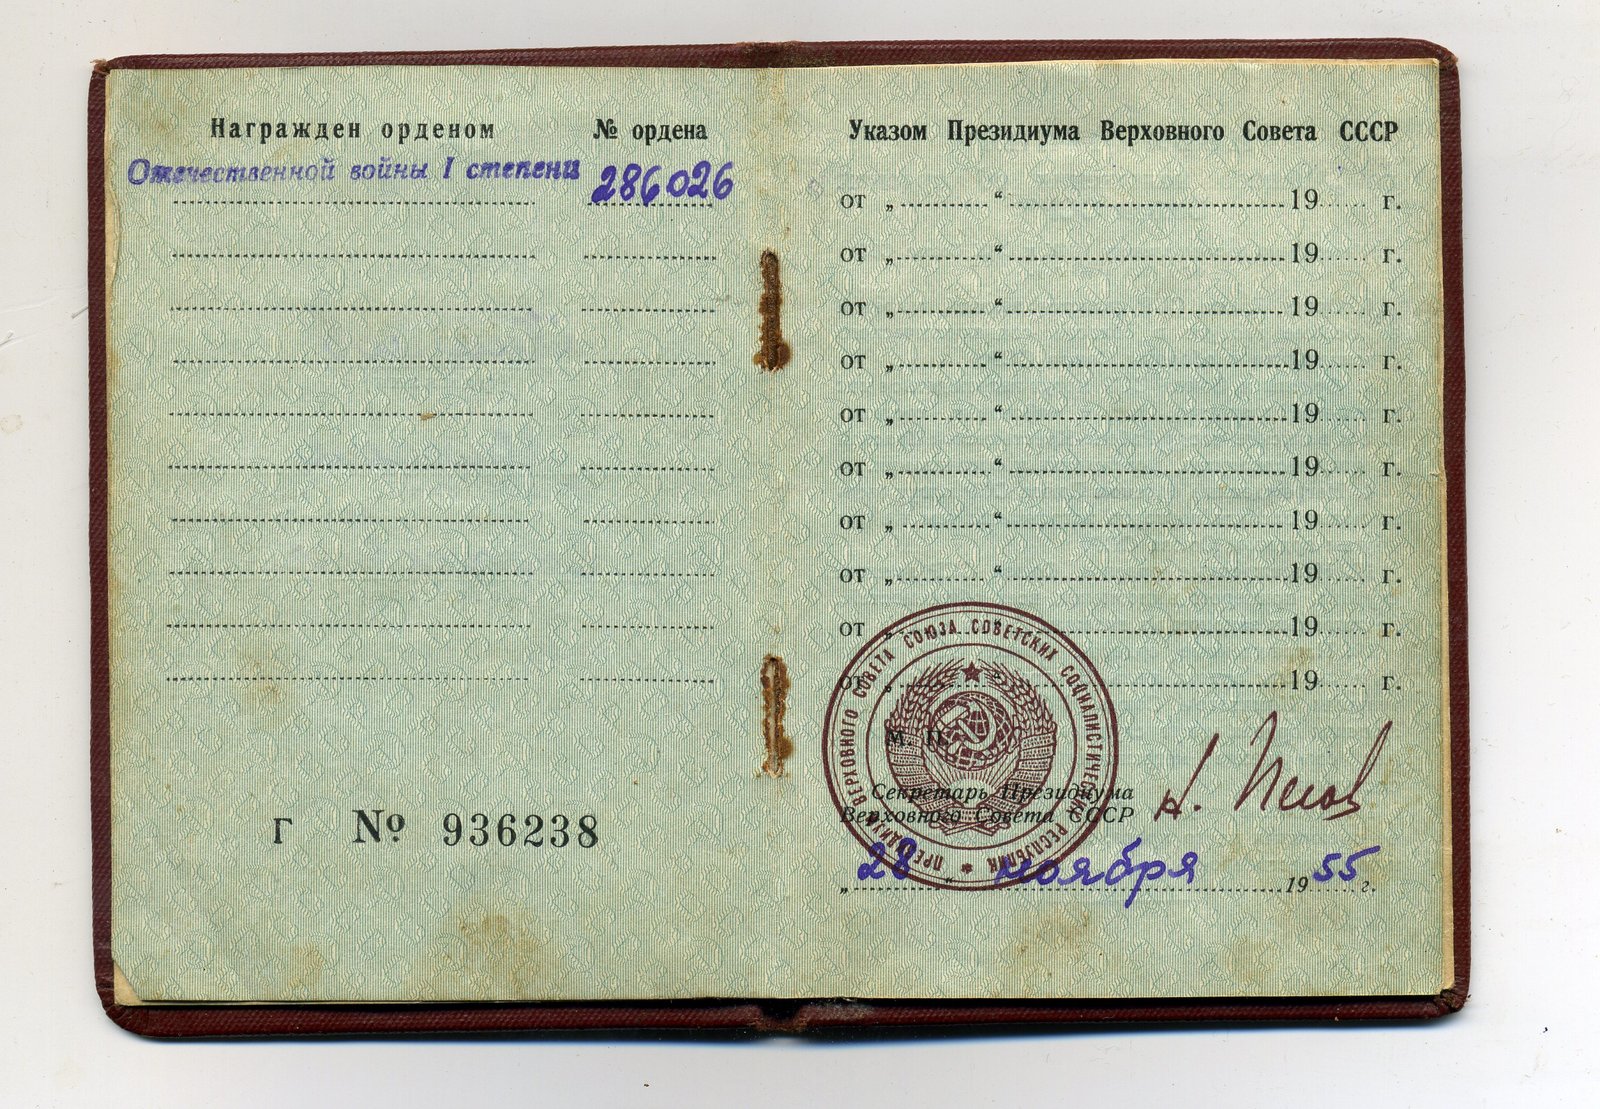 Награжден орденом № ордена
Отечественной войны I степени 286026
Г № 936238
Указом Президиума Верховного Совета СССР
от „ “ 19 г.
от „ “ 19 г.
от „ “ 19 г.
от „ “ 19 г.
от „ “ 19 г.
от „ “ 19 г.
от „ “ 19 г.
от „ “ 19 г.
от „ “ 19 г.
от „ “ 19 г.
ПРЕЗИДИУМ ВЕРХОВНОГО СОВЕТА СОЮЗА СОВЕТСКИХ СОЦИАЛИСТИЧЕСКИХ РЕСПУБЛИК
М. П.
Секретарь Президиума
Верховного Совета СССР
„28“ ноября 1955 г.